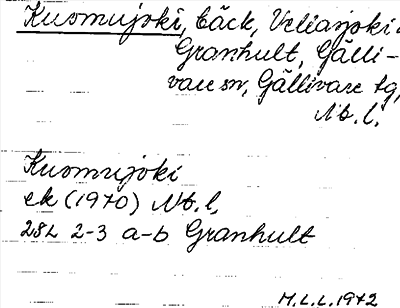 Kuomujoki, bäck, Vettasjoki -
Granhult, Gälli-
vare sn, Gällivare tg,
Nb. l.
Kuomujoki
ek (1970) Nb. l.
28L 2-3 a-b Granhult
M.L.L. 1972